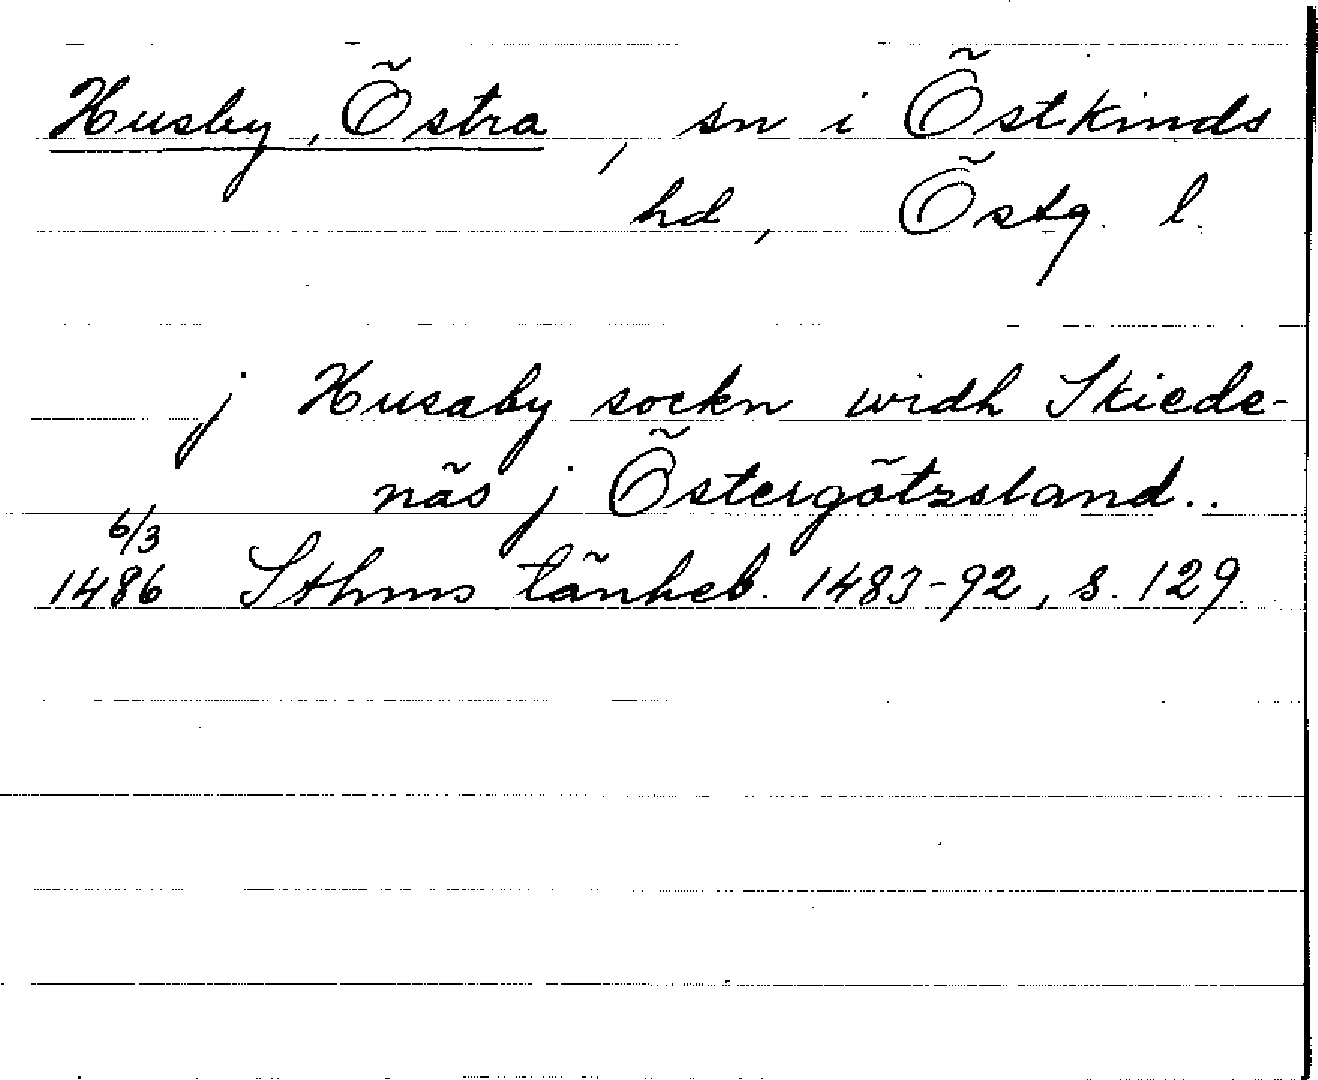 Husby, Östra, sn i Östkinds
hd, Östg. l.
j Husaby sockn widh Skiede-
näs j Östergötzsland..
6/3
1486 Sthms tänkeb. 1483-92, s. 129.